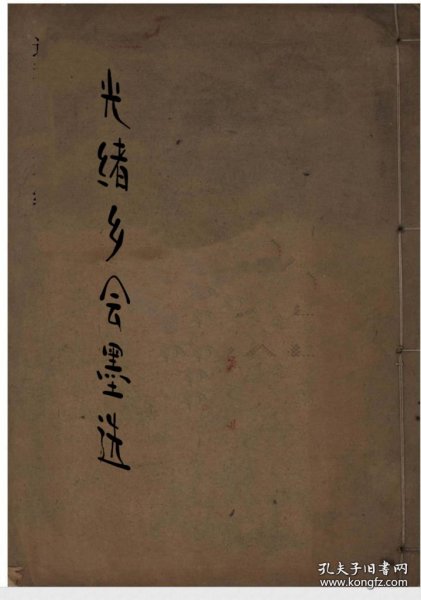 光绪乡会墨选
孔夫子旧书网
www.kongfz.com